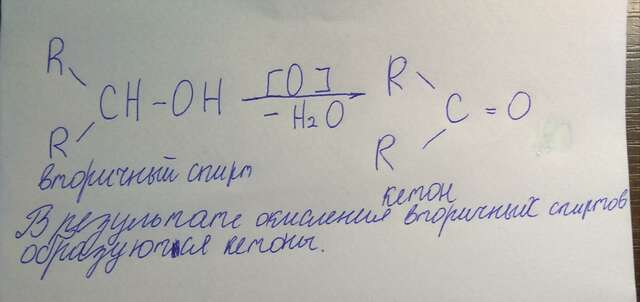 R
CH-OH [O] R
-H₂O C=O
R R
вторичный спирт
кетон
В результате окисления вторичных спиртов
образуются кетоны.